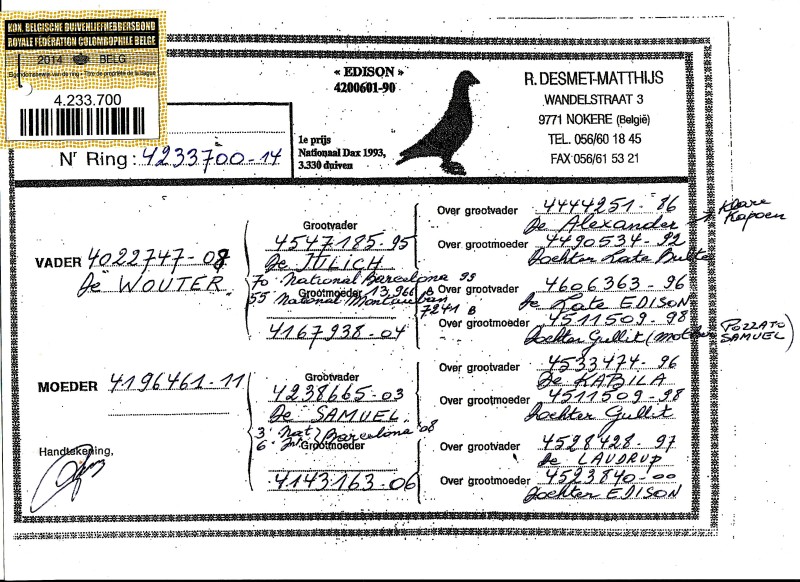 KON. BELGISCHE DUIVENLIEFHEBBERSBOND
ROYALE FÉDÉRATION COLOMBOPHILE BELGE
2014 BELG
Eigendomsbewijs van de ring - Titre de propriété de la bague
4.233.700
« EDISON »
4200601-90
1e prijs
Nationaal Dax 1993,
3.330 duiven
R. DESMET-MATTHIJS
WANDELSTRAAT 3
9771 NOKERE (België)
TEL. 056/60 18 45
FAX 056/61 53 21
Nr Ring : 4233700-14
VADER 4022747-08
De WOUTER
Grootvader
4547185-95
De JULICH
70 National Barcelona 99
13.966 B
55 National Montauban
7241 B
Grootmoeder
4167938-04
Over grootvader 4444251-86
De Alexander → Klare Kapoen
Over grootmoeder 4490534-92
Dochter Late Bulte
Over grootvader 4606363-96
De Late EDISON
Over grootmoeder 4511509-98
Dochter Gullit (mother POZZATO SAMUEL)
MOEDER 4196461-11
Grootvader
4238665-03
De SAMUEL
3. Nat. Barcelona '08
6. Int.
Grootmoeder
4143163-06
Over grootvader 4533474-96
De KABILA
Over grootmoeder 4511509-98
Dochter Gullit
Over grootvader 4528428-97
De LAUDRUP
Over grootmoeder 4523840-00
Dochter EDISON
Handtekening,